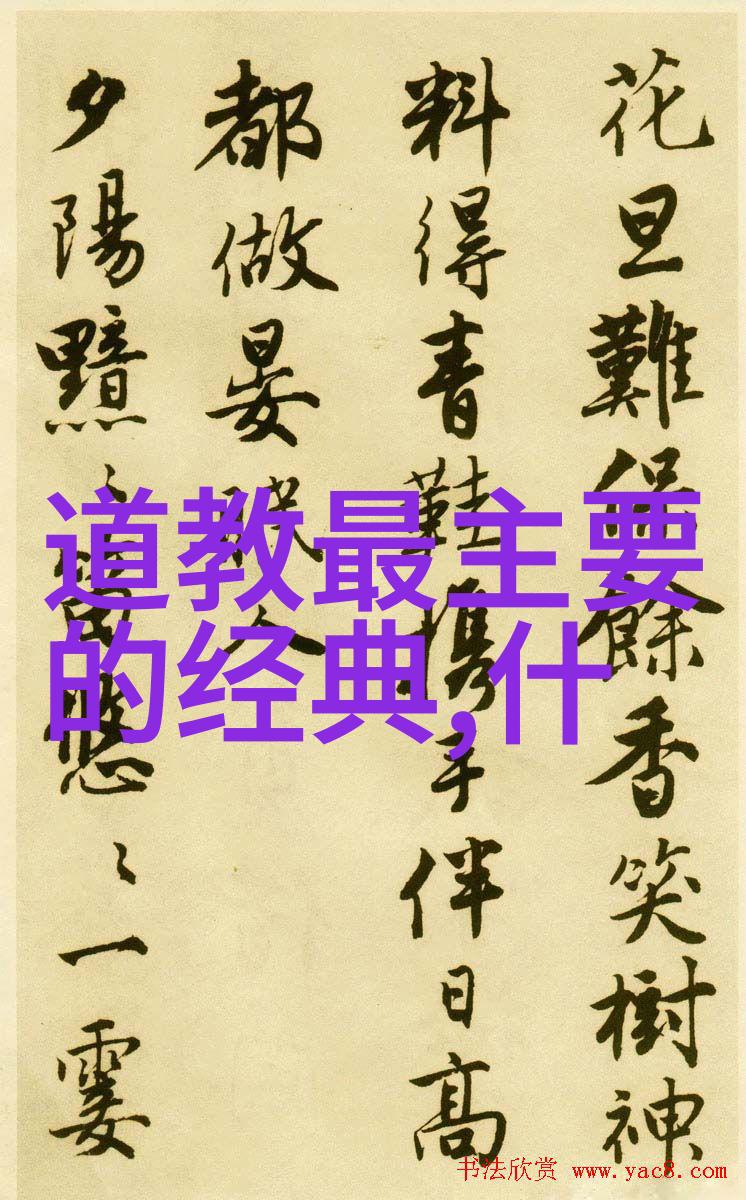 花旦難保餘香笑樹神
料得青鞋攜手伴日高
都做晏眠人
夕陽黯〻 〻一霎
道教最主要
的经典,什
书法欣赏 www.yac8.com